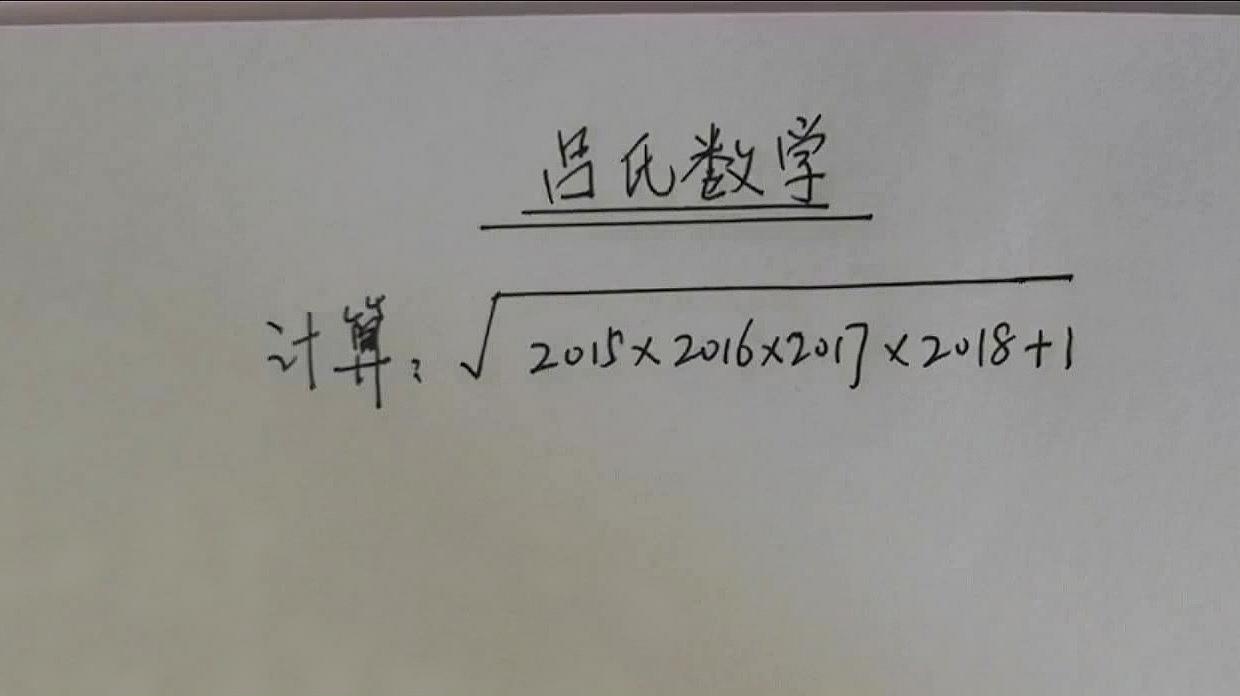 吕氏数学
计算：√2015×2016×2017×2018+1